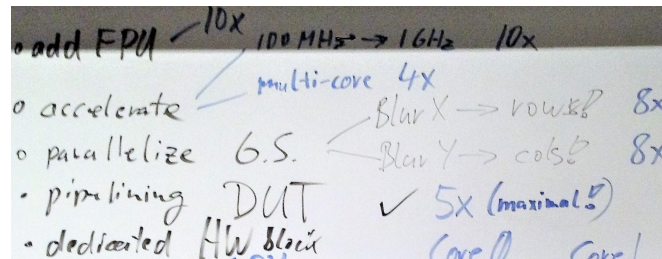 • add FPU 10x 100 MHz → 1 GHz 10x
multi-core 4x
o accelerate
BlurX → rows! 8x
o parallelize G.S.
BlurY → cols! 8x
• pipelining DUT ✓ 5x (maximal!)
• dedicated HW Block
Core 0 Core 1